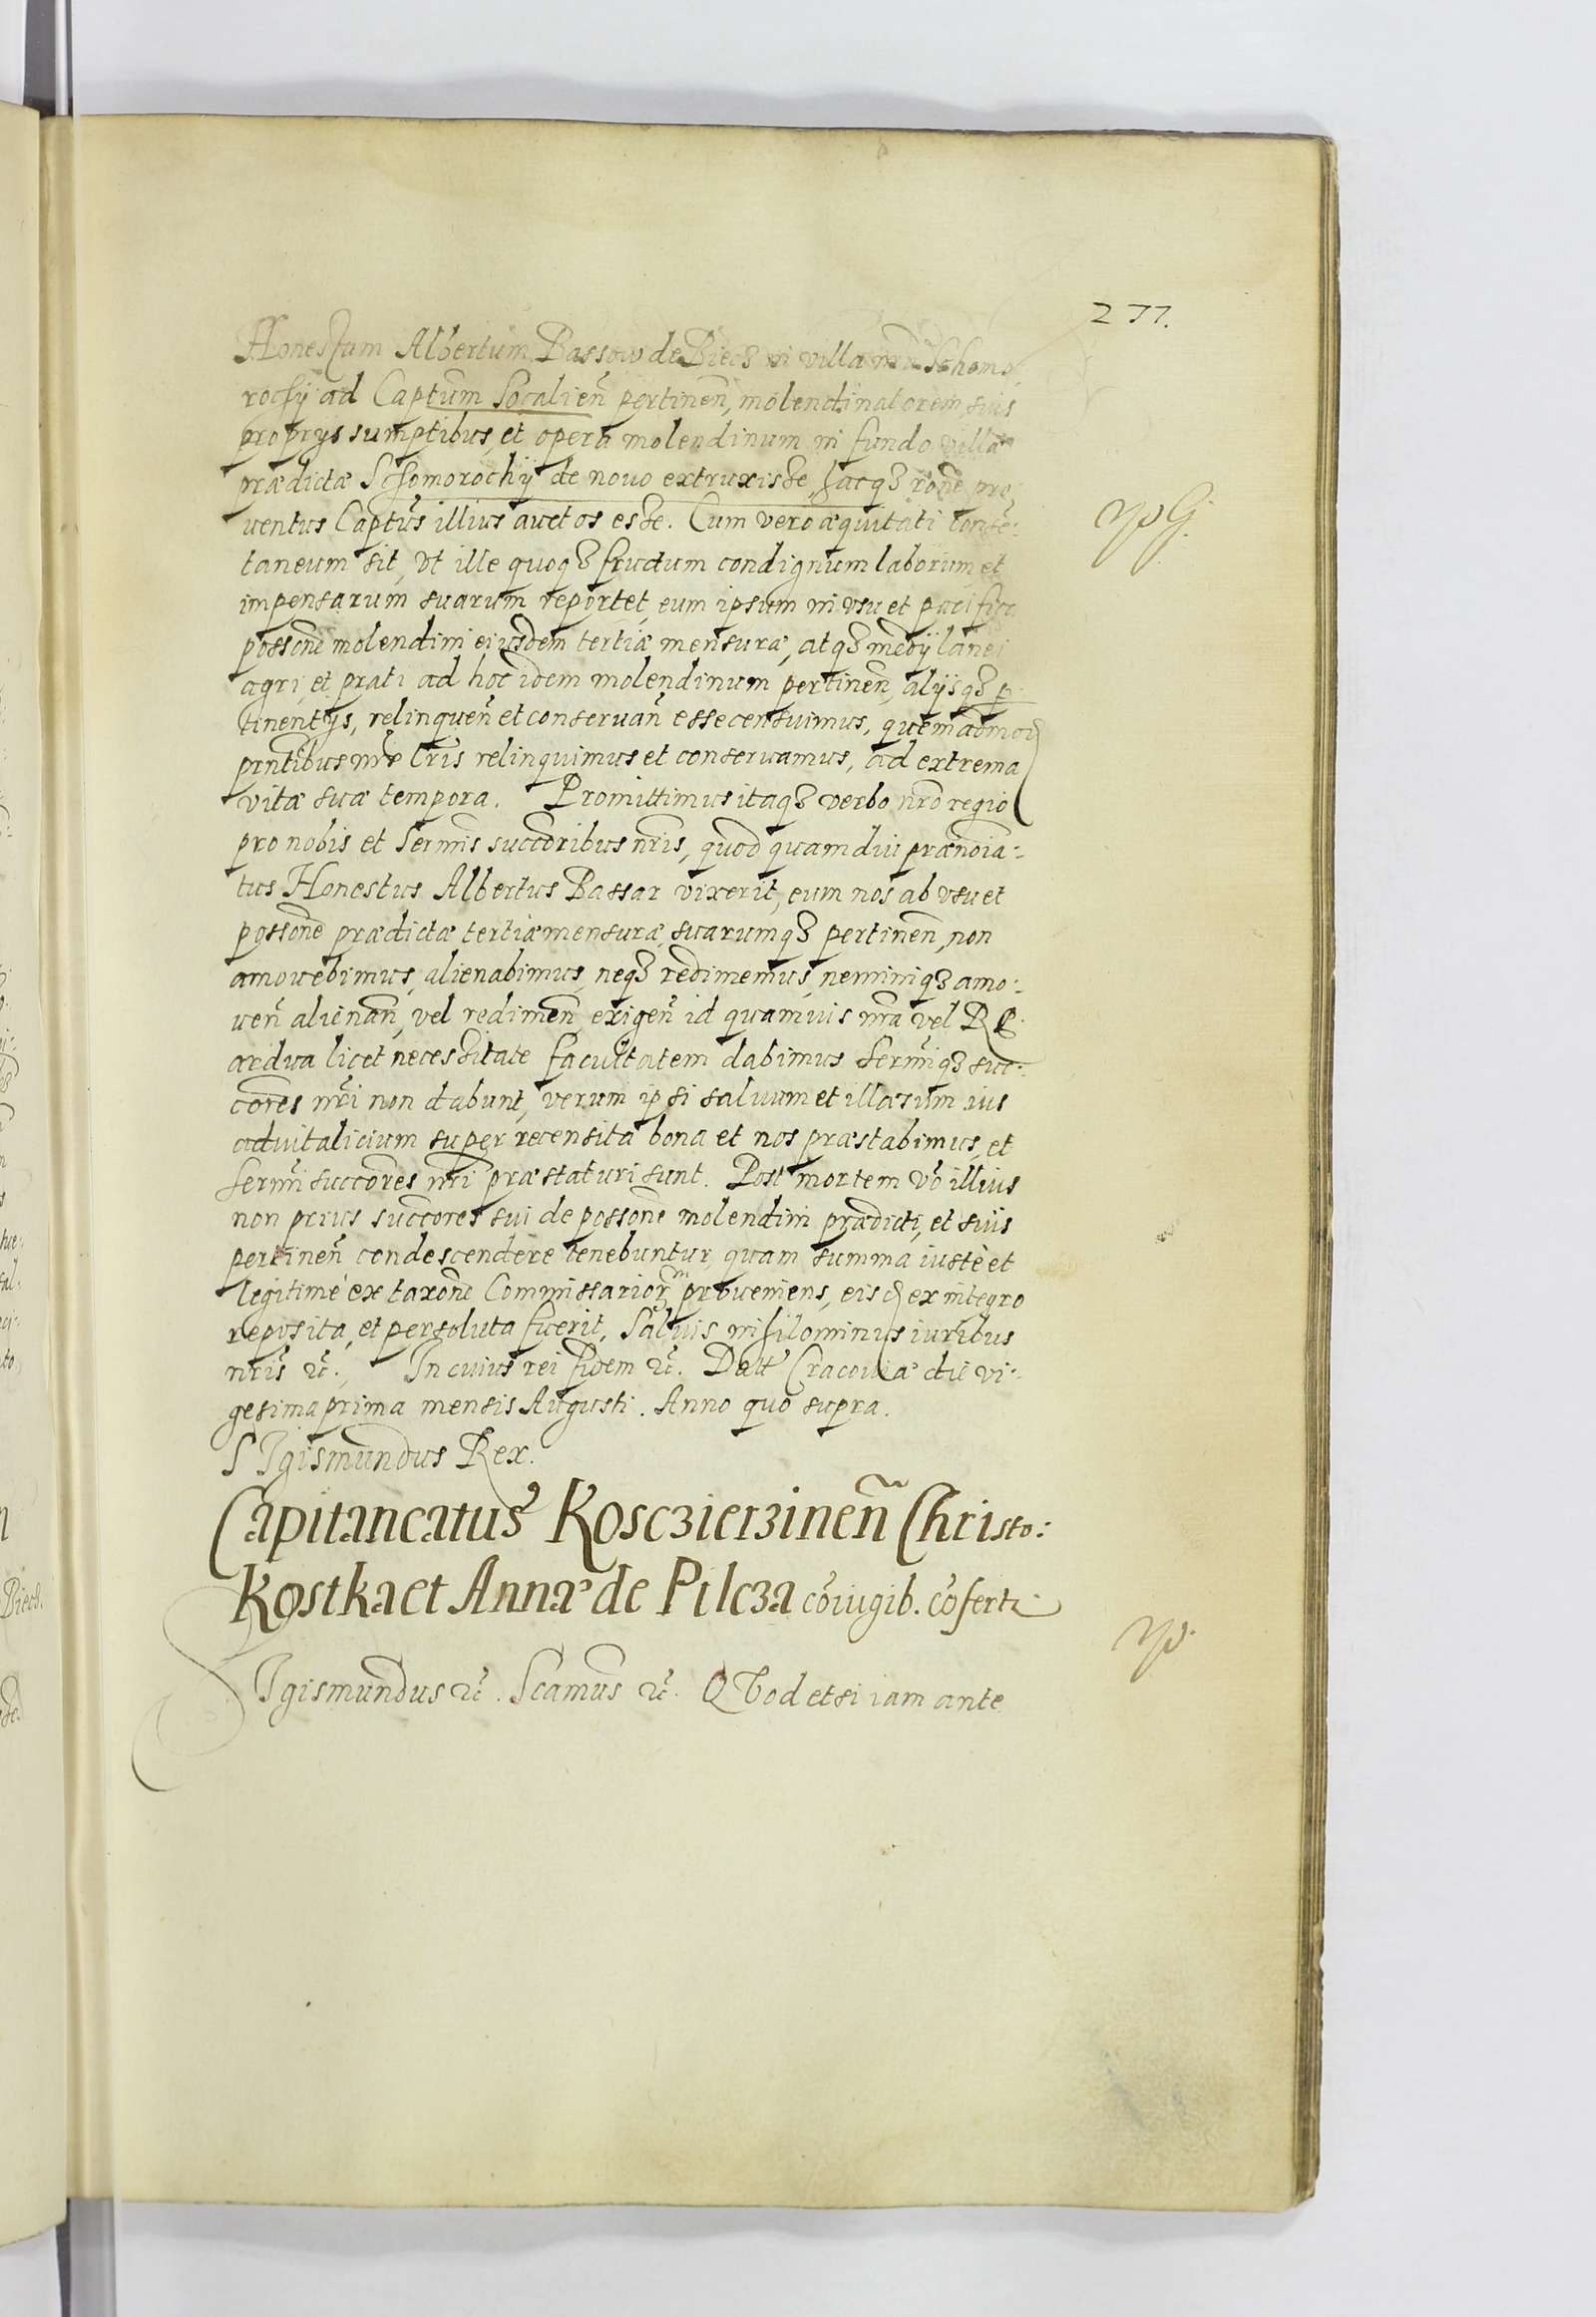 277.
Honestum Albertum Bassow de Biecz in villa nra Schomo
rochÿ ad Captum Socalien̄ pertinen̄, molendinatorem suis
proprÿs sumptibus, et opera molendinum in fundo villæ
prædictæ Schomorochÿ de nouo extruxisse, hacqꝫ rōne pro
uentus Captūs illius auctos esse. Cum vero æquitati conse-:
taneum sit, vt ille quoqꝫ fructum condignum laborum et
impensarum suarum reportet, eum ipsum in vsu et pacifica
possone molendini eiusdem tertiæ mensuræ, atqꝫ medÿ lanei
agri, et prati ad hoc idem molendinum pertinen̄, alÿsqꝫ p
tinentÿs, relinquen̄ et conseruan̄ esse censuimus, quemadmod
pn̄tibus nr̄is lr̄is relinquimus et conseruamus, ad extrema
vitæ suæ tempora. Promittimus itaqꝫ verbo nr̄o regio
pro nobis et Sermis succoribus nr̄is, quod quamdiu prænoīa-:
tus Honestus Albertus Bassar vixerit, eum nos ab vsu et
possone prædictæ tertiæ mensuræ, suarumqꝫ pertinen̄, non
amouebimus, alienabimus, neqꝫ redimemus, neminiqꝫ amo-:
uen̄ alienan̄, vel redimen̄, exigen̄ id quamuis nr̄a vel RP.
ardua licet necessitate facultatem dabimus Sermiqꝫ suc-:
cores nr̄i non dabunt, verum ipsi saluum et illæsum ius
aduitalicium super recensita bona et nos præstabimus, et
Sermi succores nr̄i præstaturi sunt. Post mortem vō illius
non prius succores sui de possone molendini prædicti, et suis
pertinen̄ condescendere tenebuntur, quam summa iustè et
legitimè ex taxone Commissarior̄m proueniens, eisd ex integro
reposita, et persoluta fuerit, Saluis nihilominus iuribus
nr̄is ꝛc̄. In cuius rei fidem ꝛc̄. Datt Cracouiæ die vi-:
gesima prima mensis Augusti. Anno quo supra.
SIgismundus Rex.
Capitaneatus Koscziersinen̄ Christo:
Kostka et Annæ de Pilcza cōiugib. cōfert
SIgismundus ꝛc̄. Scamus ꝛc̄. QVod etsi iam ante